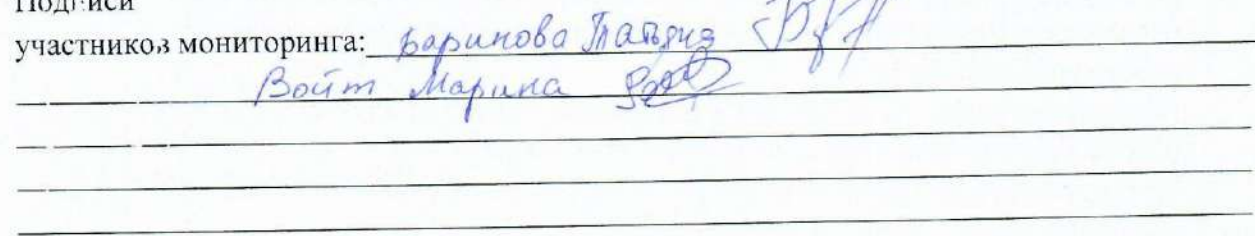 Подписи
участников мониторинга: Баринова Татьяна
Войт Марина